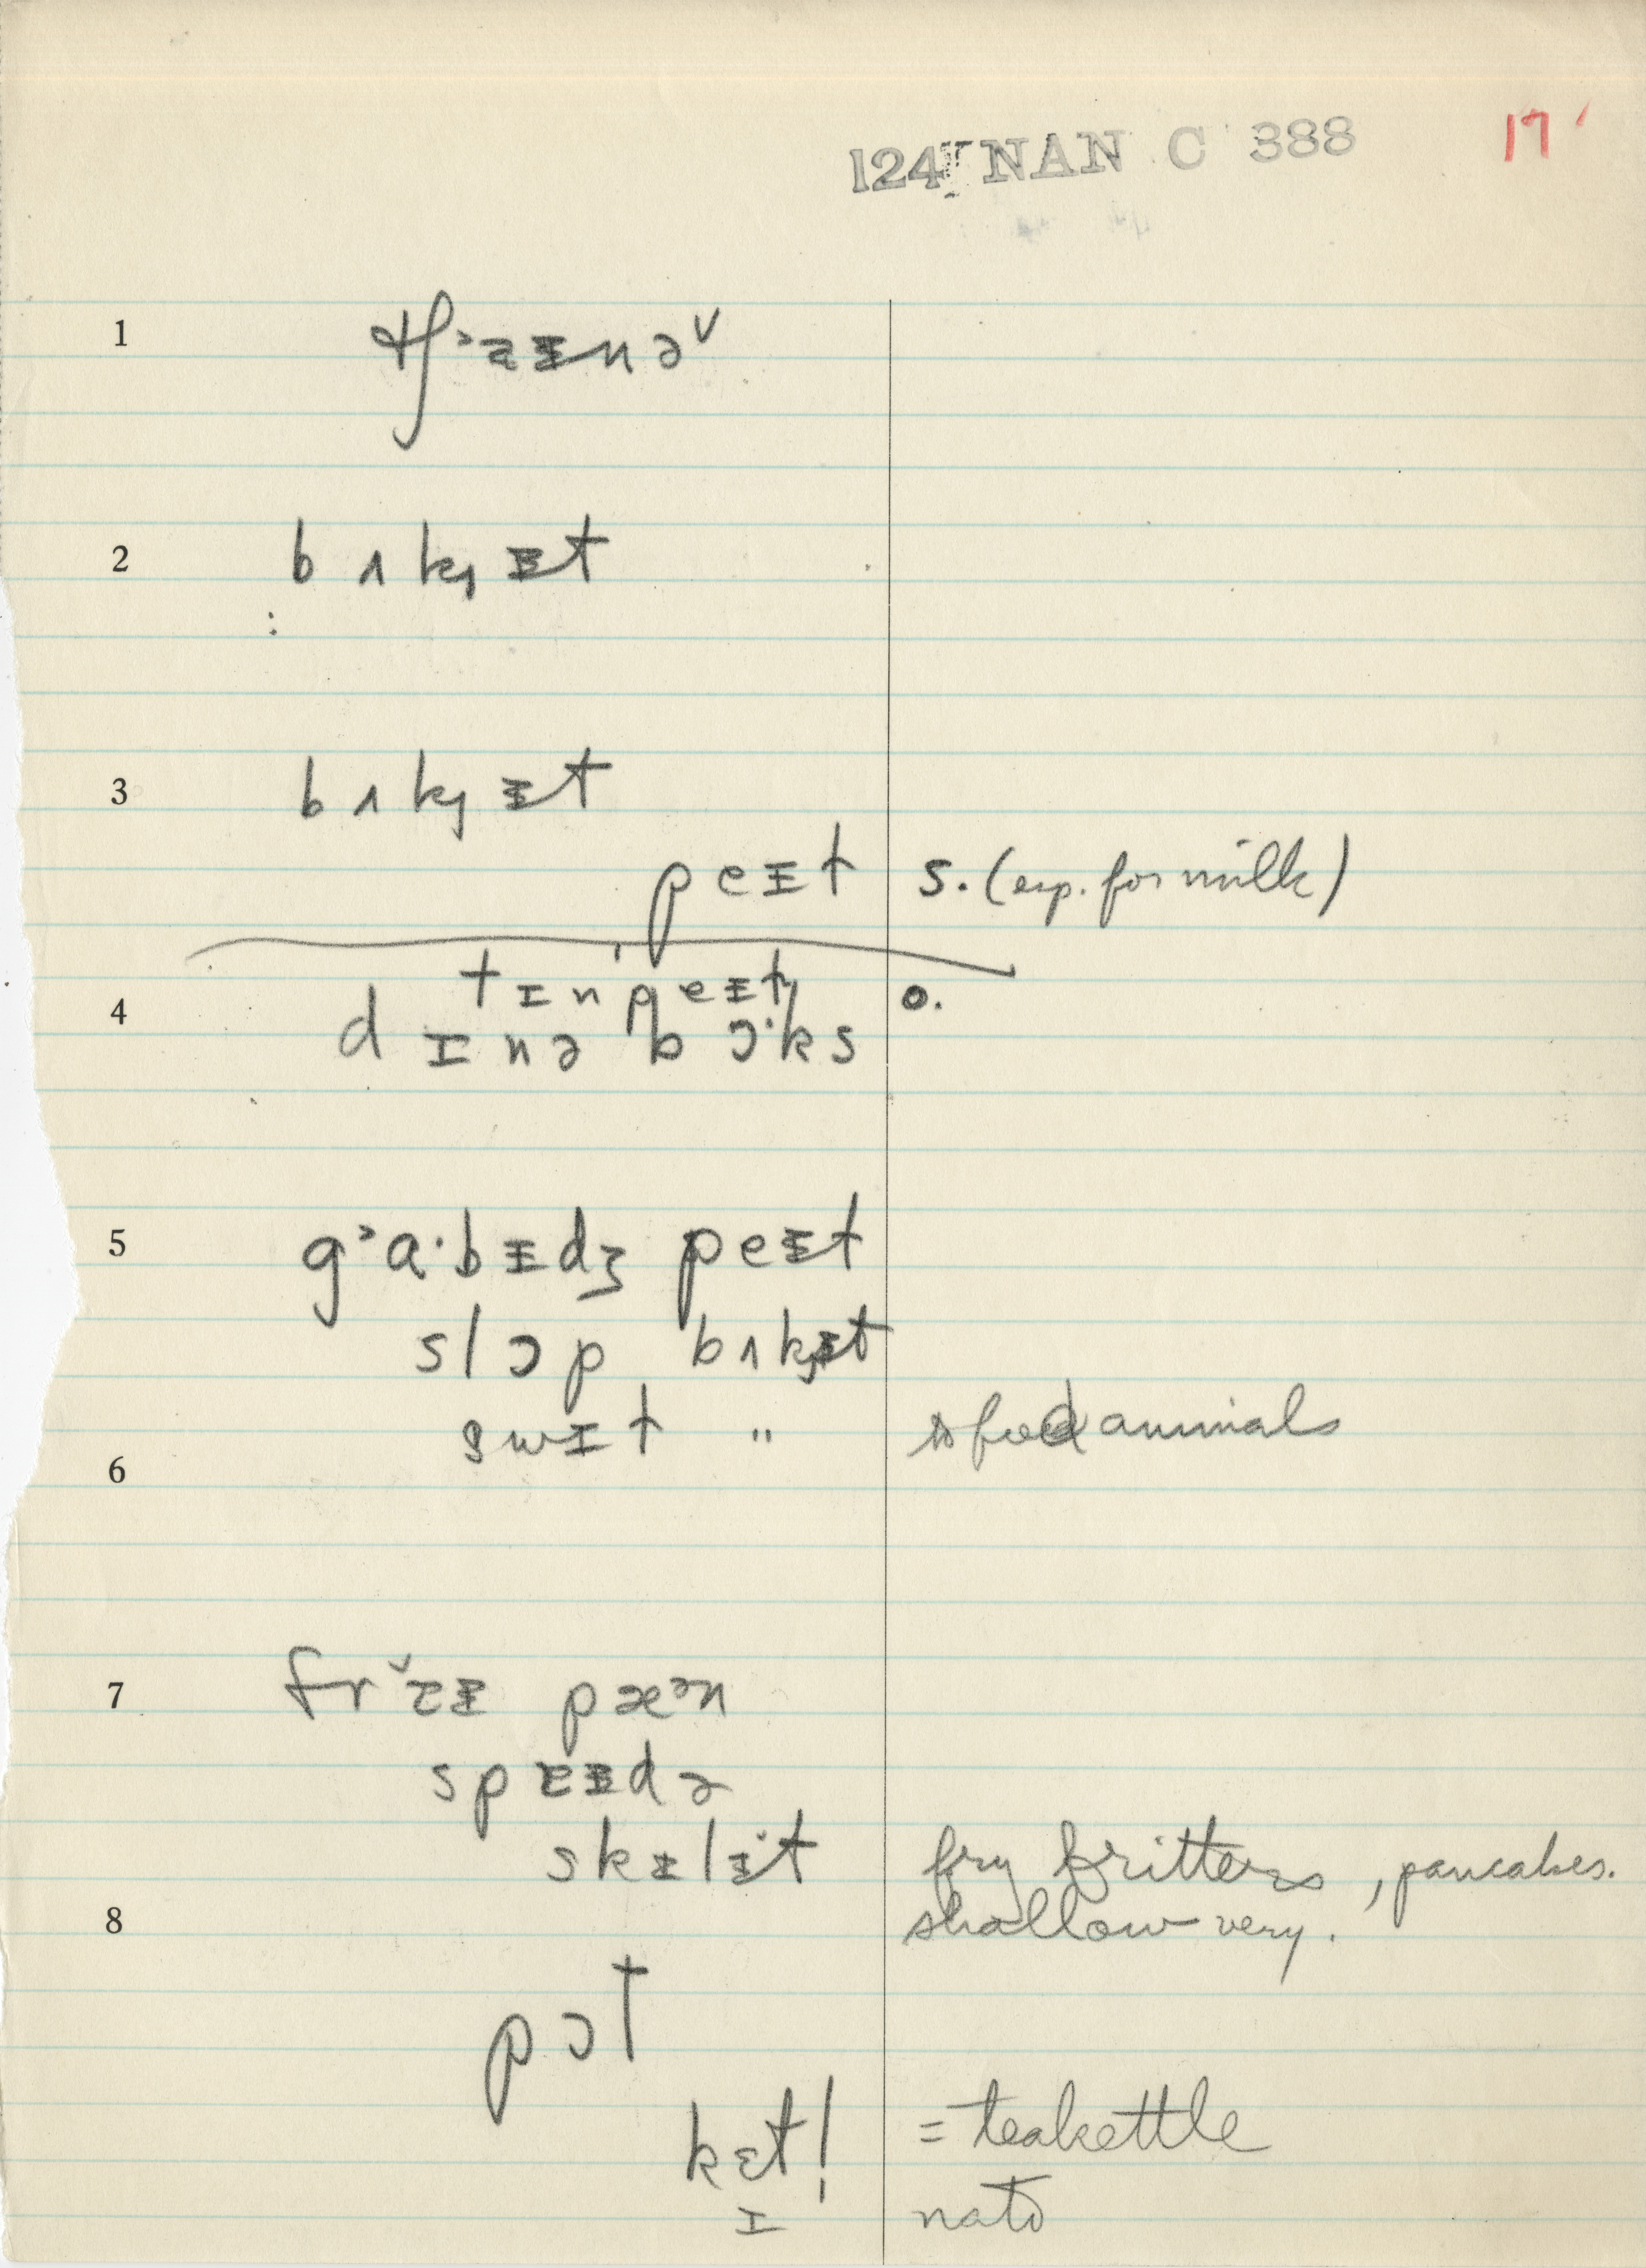 124 NAN C 388 17
1 tʃ᾽aᵻnəv
2 bʌk̡ᵻt
3 bʌk̡ᵻt
peᵻt s. (esp. for milk)
tɪnpeᵻt o.
4 dɪnə bɔ·ks
5 g᾽a·bᵻdʒ peᵻt
slɔp bʌk̡ᵻt
swɪt " to feed animals
6
7 frˇɛᵻ pæᵊn
spɛᵻdə
skᵻlᵻt fry fritters, pancakes.
8 shallow very.
pɔt
kɛtl̩ = teakettle
ɪ